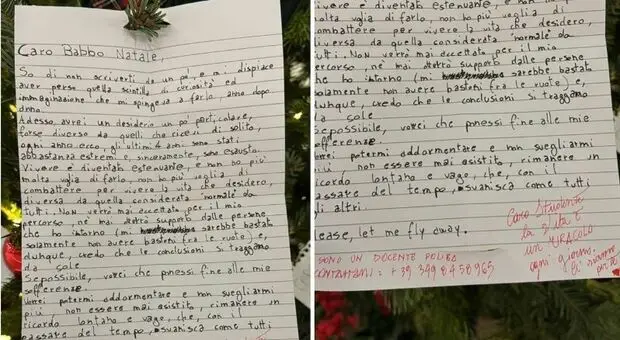 Caro Babbo Natale,
So di non scriverti da un po', e mi dispiace
aver perso quella scintilla di curiosità ed
immaginazione che mi spingeva a farlo, anno dopo
anno.
Adesso avrei un desiderio un po' particolare,
forse diverso da quelli che ricevi di solito,
ogni anno ecco, gli ultimi 4 anni sono stati
abbastanza estremi e, sinceramente, sono esausto.
Vivere è diventato estenuante, e non ho più
molta voglia di farlo, non ho più voglia di
combattere per vivere la vita che desidero,
diversa da quella considerata "normale" da
tutti. Non verrò mai accettato per il mio
percorso, né mai avrò supporto dalle persone
che ho intorno (mi sarebbe bastato
solamente non avere bastoni fra le ruote) e,
dunque, credo che le conclusioni si traggano
da sole
Se possibile, vorrei che ponessi fine alle mie
sofferenze.
Vorrei potermi addormentare e non svegliarmi
più, non essere mai esistito, rimanere un
ricordo lontano e vago, che, con il
passare del tempo, svanisca come tutti
vivere è diventato estenuante, e non ho
molta voglia di farlo, non ho più voglia di
combattere per vivere la vita che desidero,
diversa da quella considerata "normale" da
tutti. Non verrò mai accettato per il mio
percorso, né mai avrò supporto dalle persone
che ho intorno (mi sarebbe bastato
solamente non avere bastoni fra le ruote) e,
dunque, credo che le conclusioni si traggano
da sole
Se possibile, vorrei che ponessi fine alle mie
sofferenze.
Vorrei potermi addormentare e non svegliarmi
più, non essere mai esistito, rimanere un
ricordo lontano e vago, che, con il
passare del tempo, svanisca come tutti
gli altri.
lease, let me fly away.
SONO UN DOCENTE POLIBA
CONTATTAMI: +39 349 8458965
Caro Studente
la vita è
un MIRACOLO
ogni giorno.